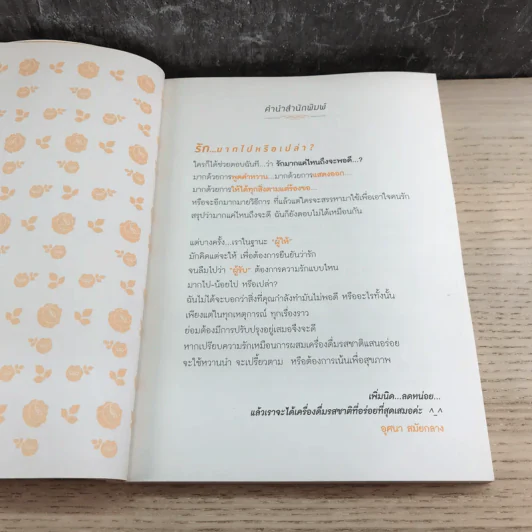 คำนำสำนักพิมพ์
รัก...มากไปหรือเปล่า?
ใครก็ได้ช่วยตอบฉันที...ว่า รักมากแค่ไหนถึงจะพอดี...?
มากด้วยการพูดคำหวาน...มากด้วยการแสดงออก...
มากด้วยการให้ได้ทุกสิ่งตามแต่ร้องขอ...
หรือจะอีกมากมายวิธีการ ที่แล้วแต่ใครจะสรรหามาใช้เพื่อเอาใจคนรัก
สรุปว่ามากแค่ไหนถึงจะดี ฉันก็ยังตอบไม่ได้เหมือนกัน
แต่บางครั้ง...เราในฐานะ "ผู้ให้"
มักคิดแต่จะให้ เพื่อต้องการยืนยันว่ารัก
จนลืมไปว่า "ผู้รับ" ต้องการความรักแบบไหน
มากไป-น้อยไป หรือเปล่า?
ฉันไม่ได้จะบอกว่าสิ่งที่คุณกำลังทำมันไม่พอดี หรืออะไรทั้งนั้น
เพียงแต่ในทุกเหตุการณ์ ทุกเรื่องราว
ย่อมต้องมีการปรับปรุงอยู่เสมอจึงจะดี
หากเปรียบความรักเหมือนการผสมเครื่องดื่มรสชาติแสนอร่อย
จะใช้หวานนำ จะเปรี้ยวตาม หรือต้องการเน้นเพื่อสุขภาพ
เพิ่มนิด...ลดหน่อย...
แล้วเราจะได้เครื่องดื่มรสชาติที่อร่อยที่สุดเสมอค่ะ ^_^
อุศนา สมัยกลาง